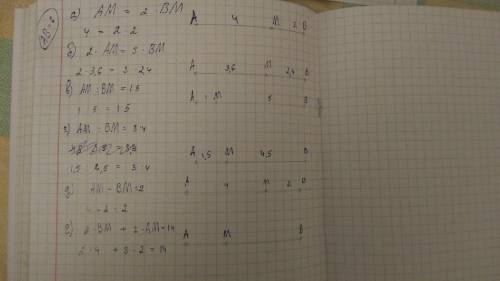 AB=6
а) AM = 2·BM A 4 M 2 B
4 = 2·2
б) 2·AM=3·BM
2·3,6 = 3·2,4 A 3,6 M 2,4 B
в) AM:BM=1:5
1:5 = 1:5 A 1 M 5 B
г) AM:BM=3:4
1,5 : 4,5 = 3:4 A 1,5 M 4,5 B
д) AM-BM=2 A 4 M 2 B
4-2=2
е) ·BM + ·AM=14 A M B
·4 + 3·2=14